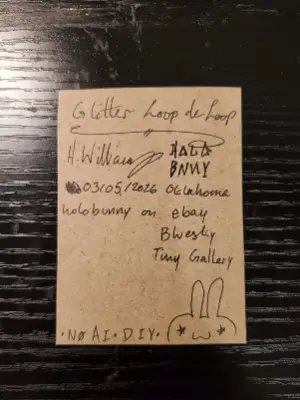 Glitter Loop de Loop
H. William
HALO
BNNY
03/05/2026 Oklahoma
holobunny on ebay
Bluesky
Tiny Gallery
•NO AI•DIY•